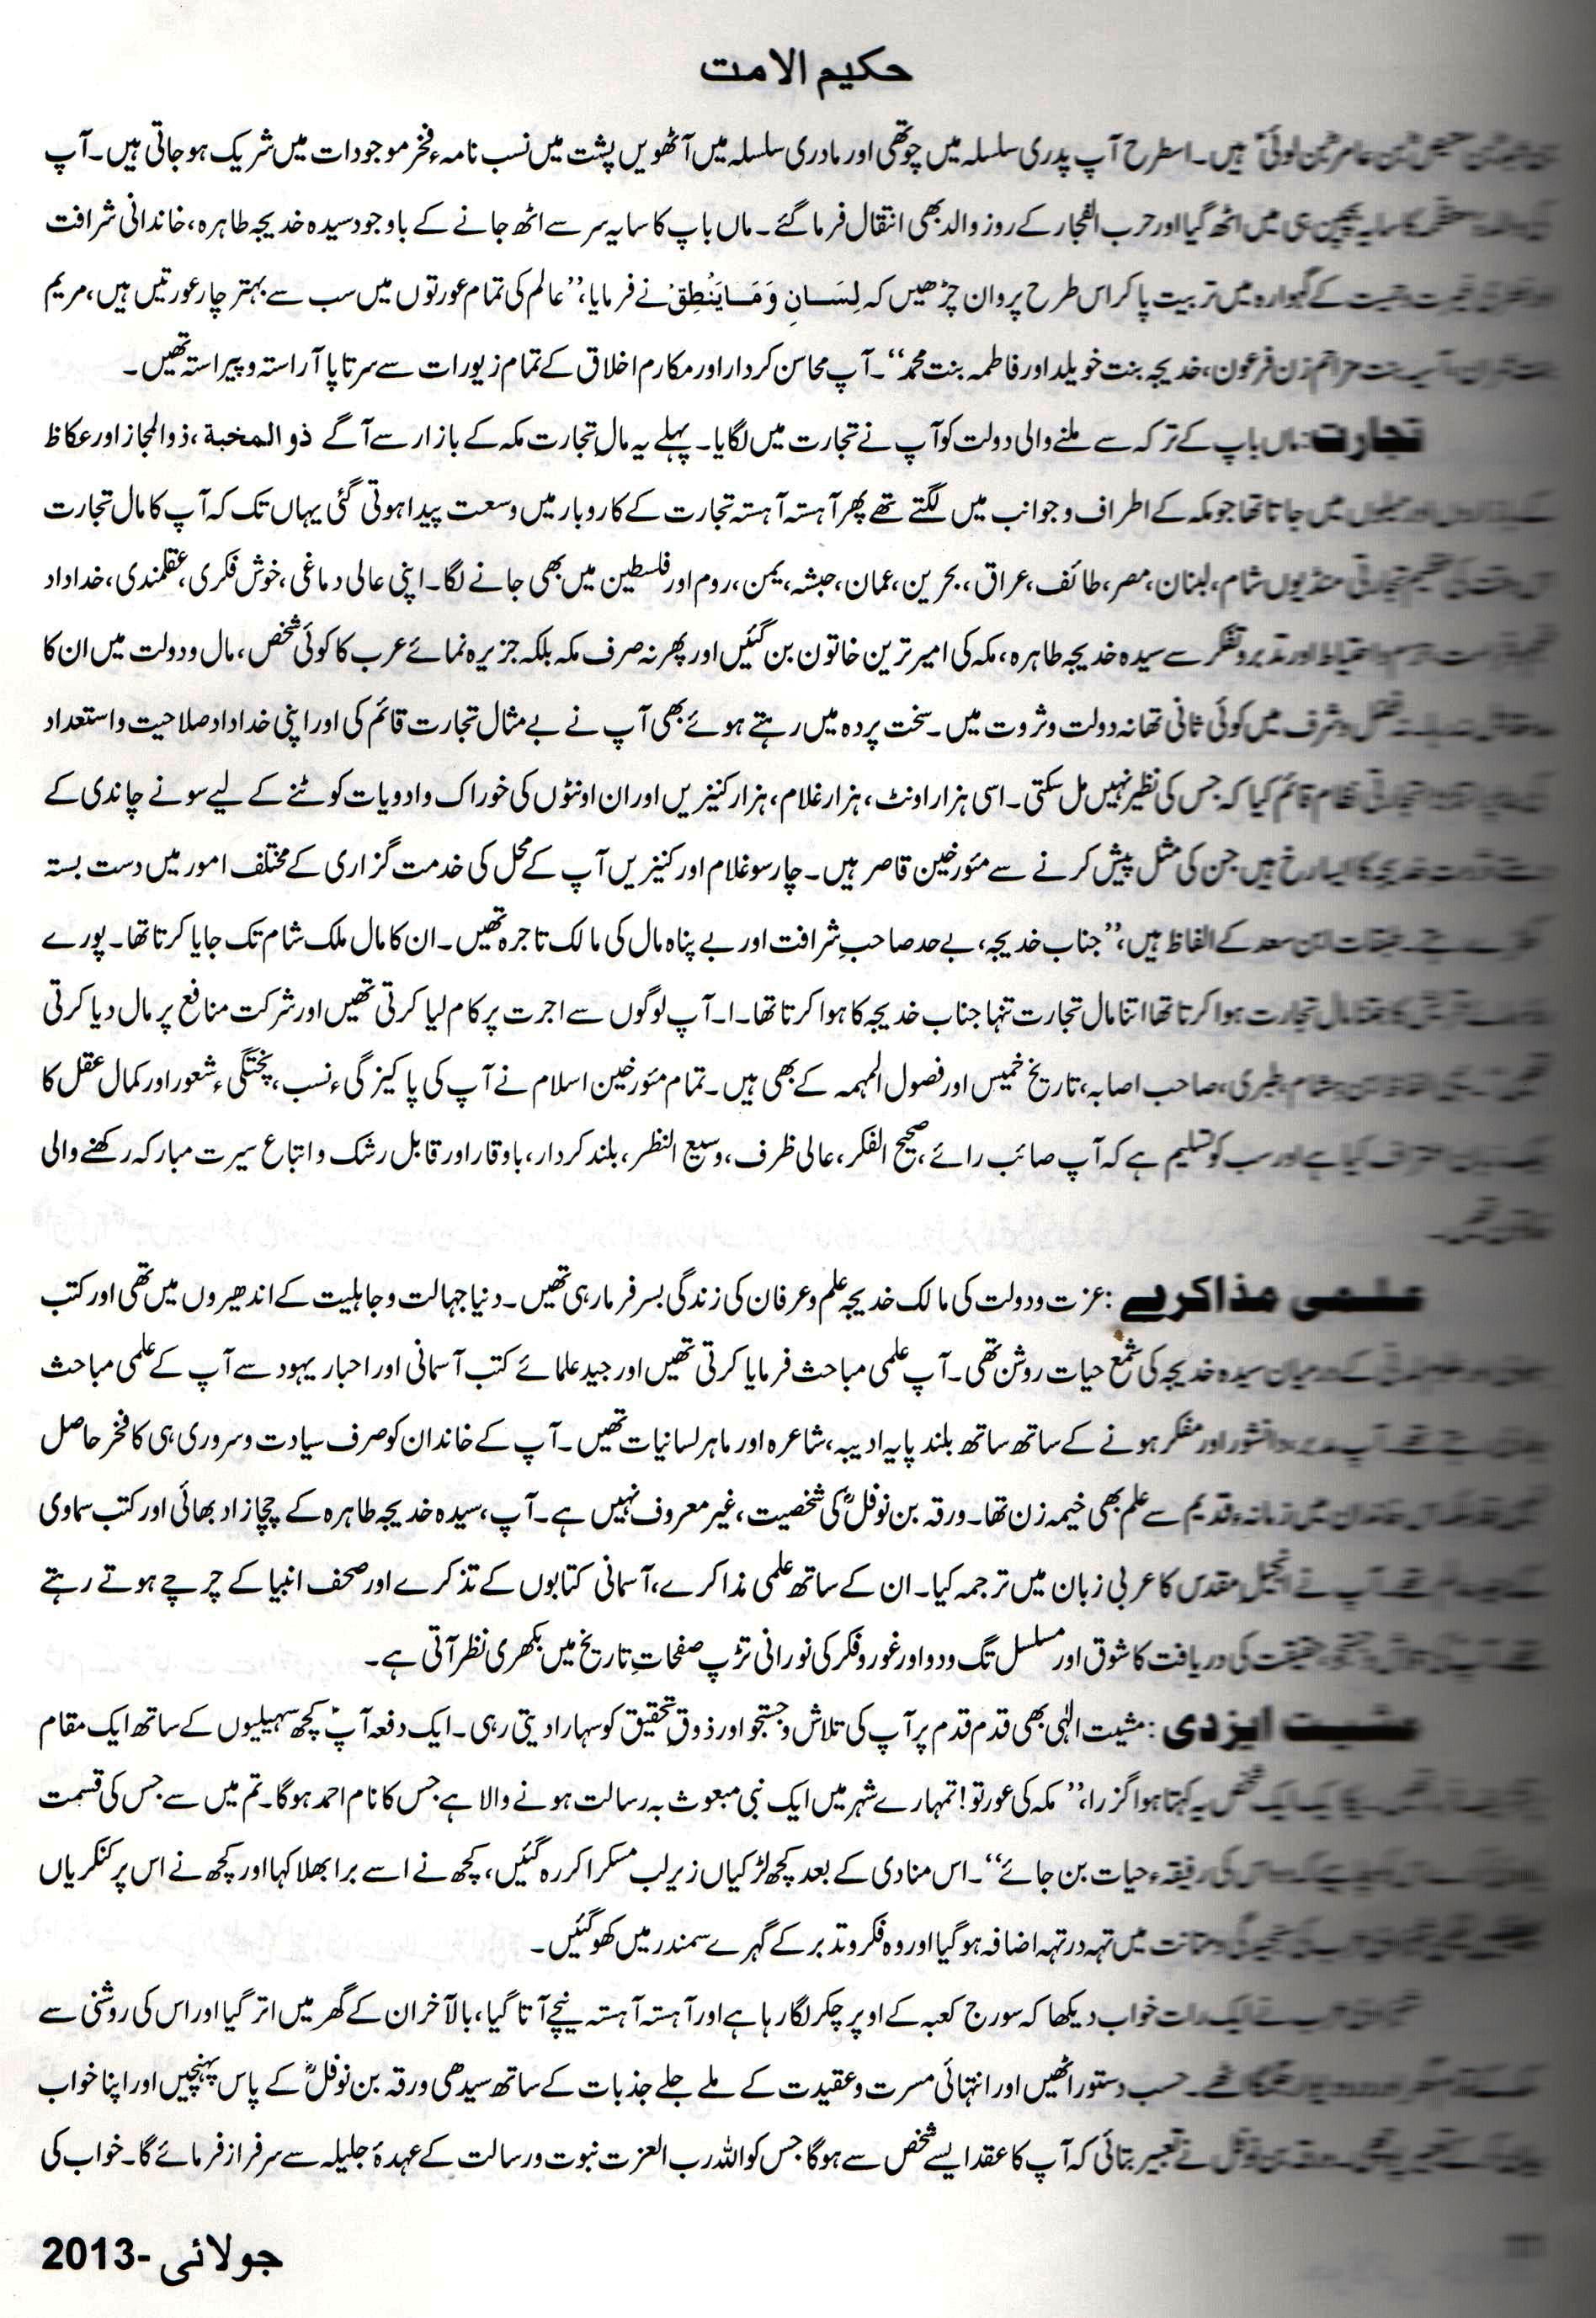 حکیم الامت
ہیں۔ اسطرح آپ پدری سلسلہ میں چوتھی اور مادری سلسلہ میں آٹھویں پشت میں نسب نامہء فخر موجودات میں شریک ہو جاتی ہیں۔ آپ
کا سایہ بچپن ہی میں اٹھ گیا اور حرب الفجار کے روز والد بھی انتقال فرما گئے۔ ماں باپ کا سایہ سر سے اٹھ جانے کے باوجود سیدہ خدیجہ طاہرہ، خاندانی شرافت
کے گہوارہ میں تربیت پا کر اس طرح پروان چڑھیں کہ لِسَانِ وَمَا یَنْطِقُ نے فرمایا،’’عالم کی تمام عورتوں میں سب سے بہتر چار عورتیں ہیں، مریم
زن فرعون، خدیجہ بنت خویلد اور فاطمہ بنت محمدؐ‘‘۔ آپ محاسن کردار اور مکارم اخلاق کے تمام زیورات سے سر تا پا آراستہ و پیراستہ تھیں۔
تجارت: ماں باپ کے ترکہ سے ملنے والی دولت کو آپ نے تجارت میں لگایا۔ پہلے یہ مالِ تجارت مکہ کے بازار سے آگے ذو المخبة، ذوالمجاز اور عکاظ
میں جاتا تھا جو مکہ کے اطراف و جوانب میں لگتے تھے پھر آہستہ آہستہ تجارت کے کاروبار میں وسعت پیدا ہوتی گئی یہاں تک کہ آپ کا مال تجارت
تجارتی منڈیوں شام، لبنان، مصر، طائف، عراق، بحرین، عمان، حبشہ، یمن، روم اور فلسطین میں بھی جانے لگا۔ اپنی عالی دماغی، خوش فکری، عقلمندی، خداداد
اور تدبر و تفکر سے سیدہ خدیجہ طاہرہ، مکہ کی امیر ترین خاتون بن گئیں اور پھر نہ صرف مکہ بلکہ جزیرہ نمائے عرب کا کوئی شخص، مال و دولت میں ان کا
و شرف میں کوئی ثانی تھا نہ دولت و ثروت میں۔ سخت پردہ میں رہتے ہوئے بھی آپ نے بے مثال تجارت قائم کی اور اپنی خداداد صلاحیت و استعداد
تجارتی نظام قائم کیا کہ جس کی نظیر نہیں مل سکتی۔ اسی ہزار اونٹ، ہزار غلام، ہزار کنیزیں اور ان اونٹوں کی خوراک و ادویات کوٹنے کے لیے سونے چاندی کے
خدیجہ کا ایسا رخ ہیں جن کی مثل پیش کرنے سے مؤرخین قاصر ہیں۔ چار سو غلام اور کنیزیں آپ کے محل کی خدمت گزاری کے مختلف امور میں دست بستہ
طبقات ابن سعد کے الفاظ ہیں،’’جناب خدیجہ، بے حد صاحبِ شرافت اور بے پناہ مال کی مالک تاجرہ تھیں۔ ان کا مال ملک شام تک جایا کرتا تھا۔ پورے
مال تجارت ہوا کرتا تھا اتنا مال تجارت تنہا جناب خدیجہ کا ہوا کرتا تھا۔ا۔ آپ لوگوں سے اجرت پر کام لیا کرتی تھیں اور شرکت منافع پر مال دیا کرتی
طبری، صاحب اصابہ، تاریخ خمیس اور فصول المہمہ کے بھی ہیں۔ تمام مؤرخین اسلام نے آپ کی پاکیزگیء نسب، پختگیء شعور اور کمال عقل کا
اعتراف کیا ہے اور سب کو تسلیم ہے کہ آپ صائب رائے، صحیح الفکر، عالی ظرف، وسیع النظر، بلند کردار، باوقار اور قابل رشک و اتباع سیرت مبارکہ رکھنے والی
علمی مذاکرے: عزت و دولت کی مالک خدیجہ علم و عرفان کی زندگی بسر فرما رہی تھیں۔ دنیا جہالت و جاہلیت کے اندھیروں میں تھی اور کتب
کے درمیان سیدہ خدیجہ کی شمع حیات روشن تھی۔ آپ علمی مباحث فرمایا کرتی تھیں اور جید علمائے کتب آسمانی اور احبار یہود سے آپ کے علمی مباحث
دانشور اور مفکر ہونے کے ساتھ ساتھ بلند پایہ ادیبہ، شاعرہ اور ماہر لسانیات تھیں۔ آپ کے خاندان کو صرف سیادت و سروری ہی کا فخر حاصل
خاندان میں زمانہء قدیم سے علم بھی خیمہ زن تھا۔ ورقہ بن نوفلؓ کی شخصیت، غیر معروف نہیں ہے۔ آپ، سیدہ خدیجہ طاہرہ کے چچا زاد بھائی اور کتب سماوی
آپ نے انجیل مقدس کا عربی زبان میں ترجمہ کیا۔ ان کے ساتھ علمی مذاکرے، آسمانی کتابوں کے تذکرے اور صحف انبیا کے چرچے ہوتے رہتے
حقیقت کی دریافت کا شوق اور مسلسل تگ و دو اور غور و فکر کی نورانی تڑپ صفحاتِ تاریخ میں بکھری نظر آتی ہے۔
مشیت ایزدی: مشیت الٰہی بھی قدم قدم پر آپ کی تلاش و جستجو اور ذوقِ تحقیق کو سہارا دیتی رہی۔ ایک دفعہ آپؐ کچھ سہیلیوں کے ساتھ ایک مقام
ایک شخص یہ کہتا ہوا گزرا،’’مکہ کی عورتو! تمہارے شہر میں ایک نبی مبعوث بہ رسالت ہونے والا ہے جس کا نام احمد ہوگا۔ تم میں سے جس کی قسمت
کی رفیقہء حیات بن جائے‘‘۔ اس منادی کے بعد کچھ لڑکیاں زیر لب مسکرا کر رہ گئیں، کچھ نے اسے برا بھلا کہا اور کچھ نے اس پر کنکریاں
متانت میں تہہ در تہہ اضافہ ہو گیا اور وہ فکر و تدبر کے گہرے سمندر میں کھو گئیں۔
نے ایک رات خواب دیکھا کہ سورج کعبہ کے اوپر چکر لگا رہا ہے اور آہستہ آہستہ نیچے آتا گیا، بالآخر ان کے گھر میں اتر گیا اور اس کی روشنی سے
حسب دستور اٹھیں اور انتہائی مسرت و عقیدت کے ملے جلے جذبات کے ساتھ سیدھی ورقہ بن نوفلؓ کے پاس پہنچیں اور اپنا خواب
ورقہ بن نوفل نے تعبیر بتائی کہ آپ کا عقد ایسے شخص سے ہوگا جس کو اللہ رب العزت نبوت و رسالت کے عہدۂ جلیلہ سے سرفراز فرمائے گا۔ خواب کی
جولائی -2013